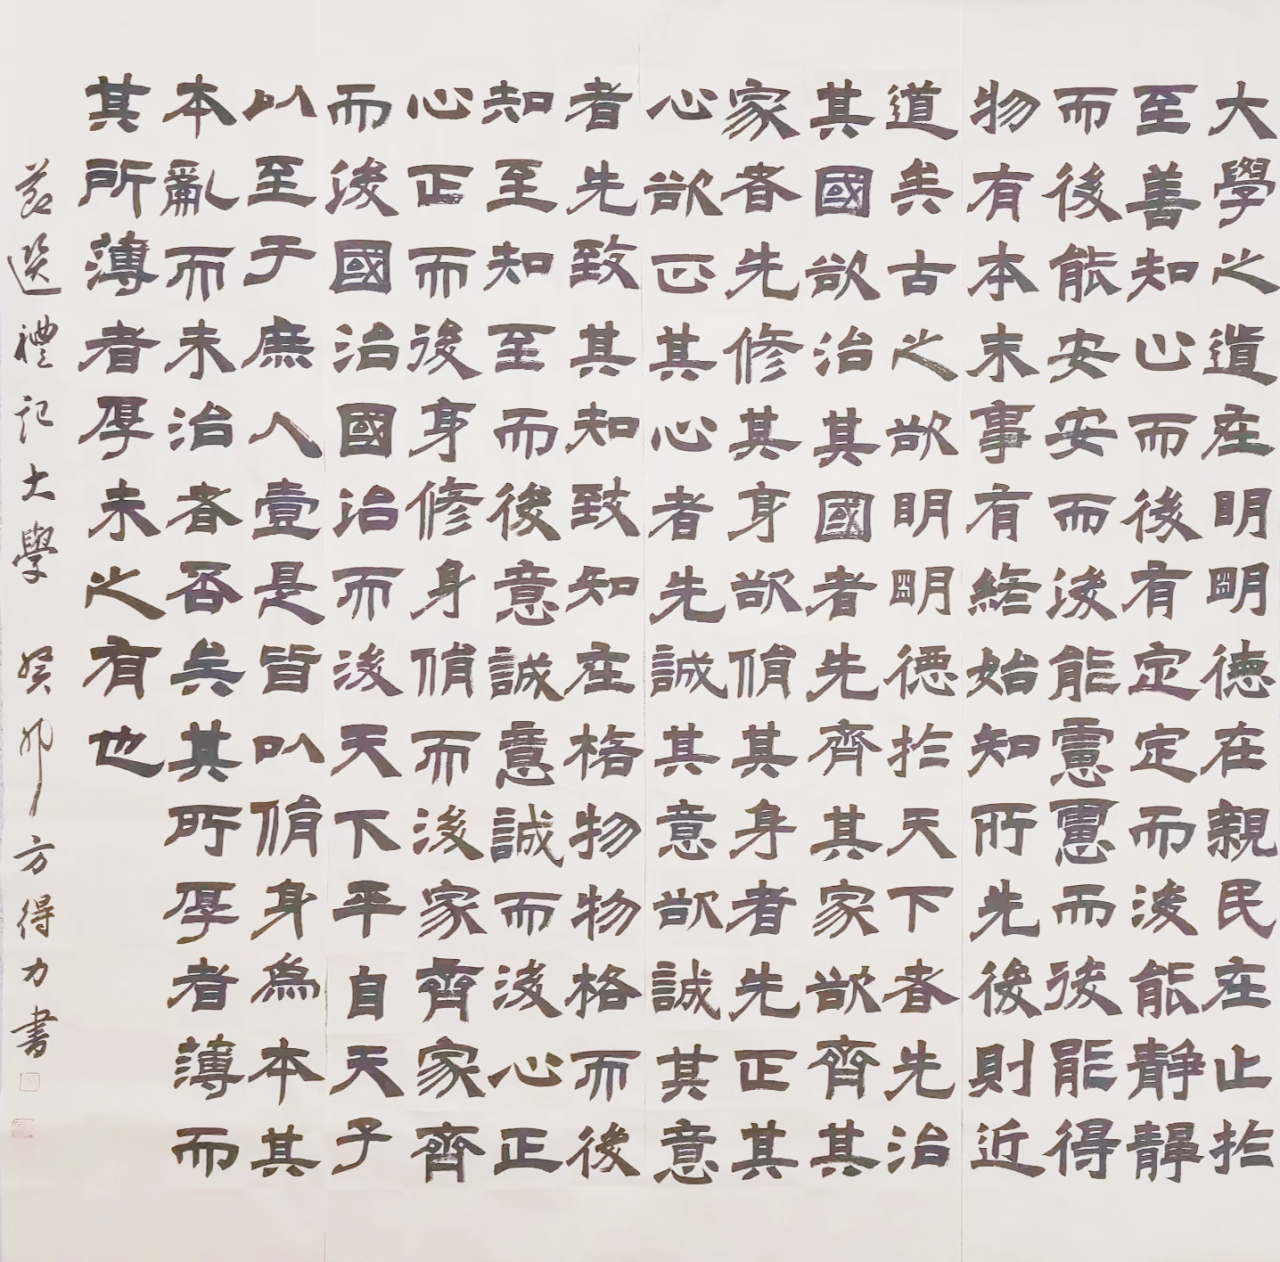 大學之道在明明德在親民在止於
至善知止而後有定定而後能靜靜
而後能安安而後能慮慮而後能得
物有本末事有終始知所先後則近
道矣古之欲明明德於天下者先治
其國欲治其國者先齊其家欲齊其
家者先修其身欲脩其身者先正其
心欲正其心者先誠其意欲誠其意
者先致其知致知在格物物格而後
知至知至而後意誠意誠而後心正
心正而後身修身脩而後家齊家齊
而後國治國治而後天下平自天子
以至于庶人壹是皆以脩身為本其
本亂而末治者否矣其所厚者薄而
其所薄者厚未之有也
節選禮記大學 癸卯方得力書